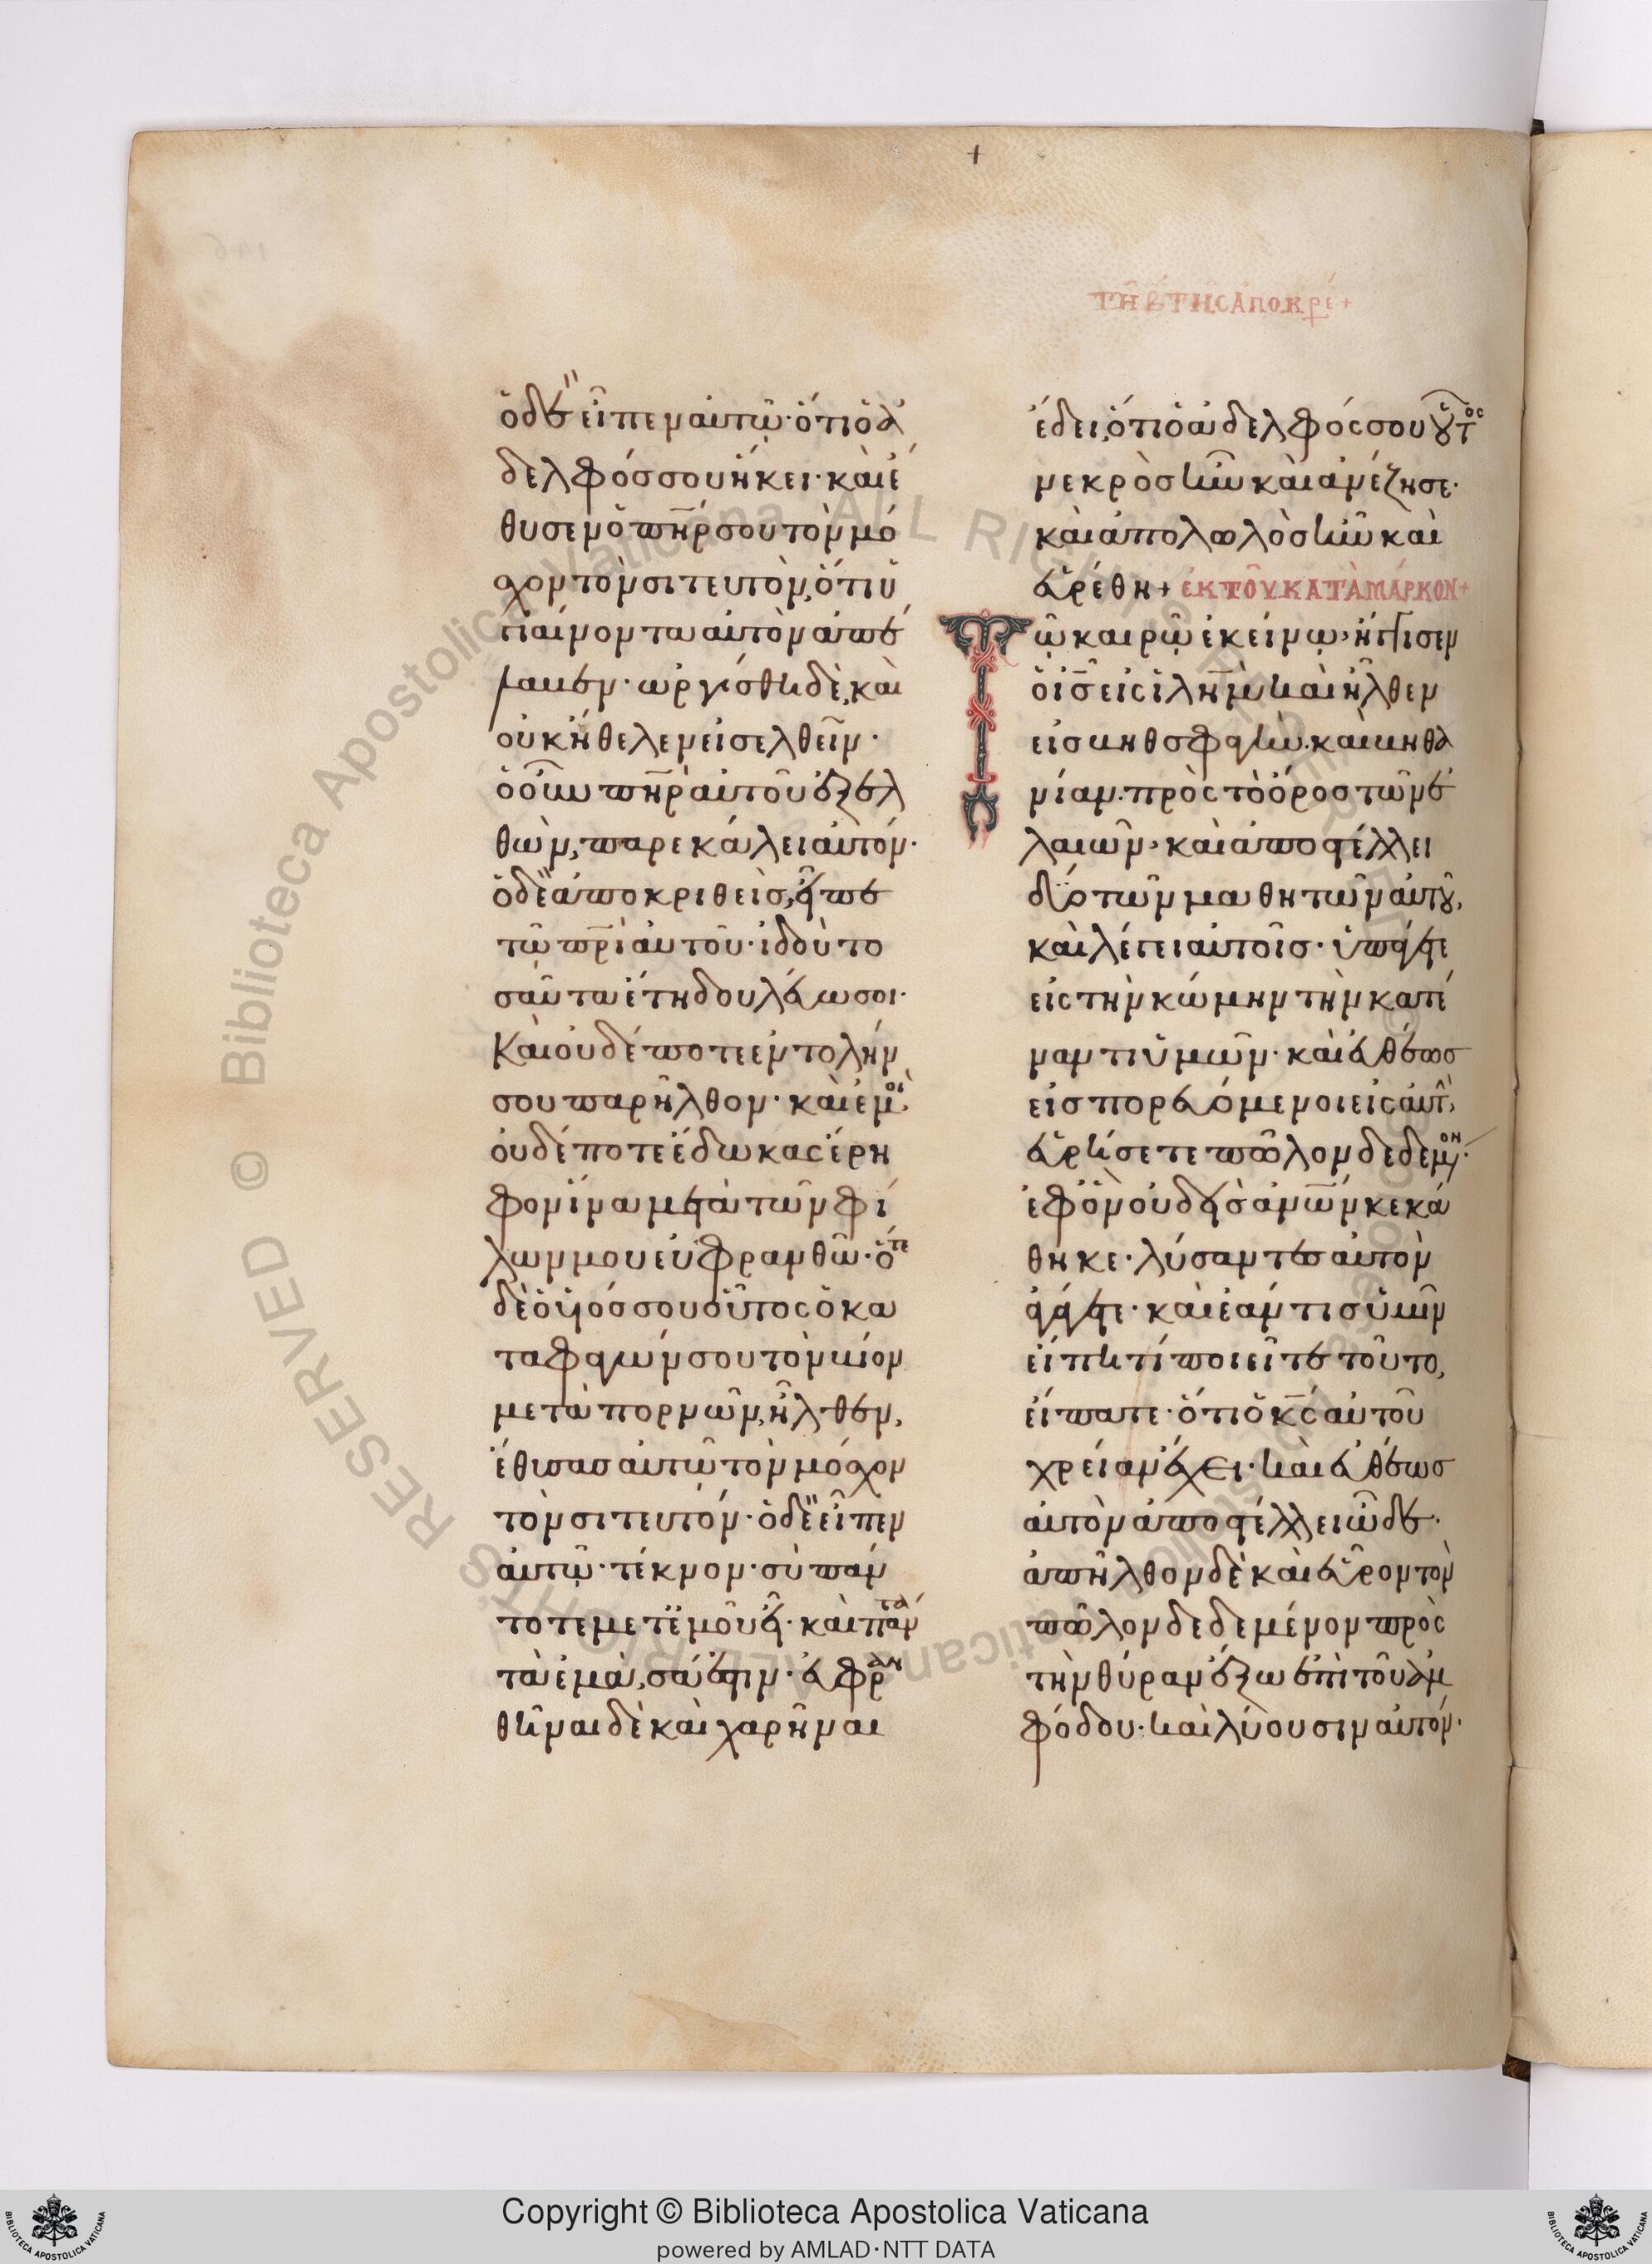 +
τῆ β τῆς ἀποκρέ+
ὁ δὲ εἶπεν αὐτῶ· ὅτι ὁ ἀ
δελφός σου ἥκει· καὶ ἔ
θυσεν ὁ πηρ σου τὸν μό
σχον τὸν σιτευτὸν, ὅτι ὑ
γιαίνοντα αὐτὸν ἀπέ
λαβεν· ὠργίσθη δὲ, καὶ
οὐκ ἤθελεν εἰσελθεῖν·
ὁ οὖν πηρ αὐτοῦ ἐξελ
θὼν, παρεκάλει αὐτόν·
ὁ δὲ ἀποκριθεὶς, εἶπε
τῶ πρὶ αὐτοῦ· ἰδοὺ το
σαῦτα ἔτη δουλεύω σοι·
Καὶ οὐδέποτε ἐντολήν
σου παρῆλθον· καὶ ἐμοὶ
οὐδέποτε ἔδωκας ἔρι
φον ἵνα μετὰ τῶν φί
λων μου εὐφρανθῶ· ὅτε
δὲ ὁ υἱός σου οὗτος ὁ κα
ταφαγών σου τὸν βίον
μετὰ πορνῶν, ἦλθεν,
ἔθυσας αὐτῶ τὸν μόσχον
τὸν σιτευτόν· ὁ δὲ εἶπεν
αὐτῶ· τέκνον· σὺ πάν
τοτε μετ ἐμοῦ εἶ· καὶ πάντα
τὰ ἐμὰ, σά ἐστιν· εὐφραν
θῆναι δὲ καὶ χαρῆναι
ἔδει, ὅτι ὁ ἀδελφός σου οὗτος
νεκρὸς ἦν καὶ ἀνέζησε·
καὶ ἀπολωλὸς ἦν καὶ
εὑρέθη+ ἐκ τοῦ κατὰ μάρκον+
Τῶ καιρῶ ἐκείνω, ἤγγισεν
ὁ ις εἰς ιλημ καὶ ἦλθεν
εἰς βηθσφαγὴ· καὶ βηθα
νίαν· πρὸς τὸ ὄρος τῶν ἐ
λαιῶν· καὶ ἀποστέλλει
δύο τῶν μαθητῶν αὐτοῦ,
καὶ λέγει αὐτοῖς· ὑπάγετε
εἰς τὴν κώμην τὴν κατέ
ναντι ὑμῶν· καὶ εὐθέως
εἰσπορευόμενοι εἰς αὐτὴ
εὑρήσετε πῶλον δεδεμένον·
ἐφ ὃν οὐδεὶς ανων κεκά
θηκε· λύσαντες αὐτὸν
ἀγάγετε· καὶ ἐάν τις ὑμῖν
εἴπη τί ποιεῖτε τοῦτο,
εἴπατε· ὅτι ὁ κς αὐτοῦ
χρείαν ἔχει· καὶ εὐθέως
αὐτὸν ἀποστέλλει ὧδε·
ἀπῆλθον δὲ καὶ εὗρον τὸν
πῶλον δεδεμένον πρὸς
τὴν θύραν ἔξω ἐπὶ τοῦ ἀμ
φόδου· καὶ λύουσιν αὐτόν·
Copyright © Biblioteca Apostolica Vaticana
powered by AMLAD·NTT DATA